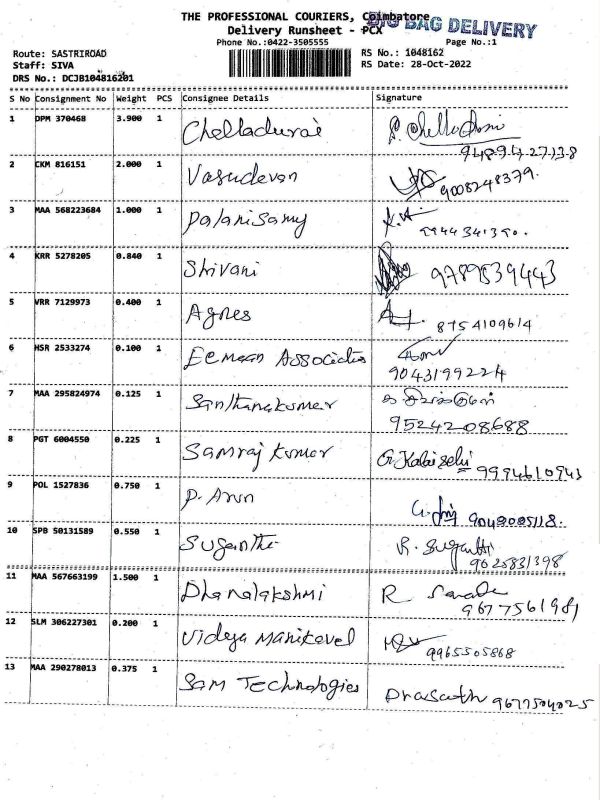 THE PROFESSIONAL COURIERS, Coimbatore
BIG BAG DELIVERY
Delivery Runsheet - PCX
Phone No.:0422-3505555 Page No.:1
Route: SASTRIROAD RS No.: 1048162
Staff: SIVA RS Date: 28-Oct-2022
DRS No.: DCJB104816201
S No Consignment No Weight PCS Consignee Details Signature
1 DPM 370468 3.900 1 Chelladurai
9489427138
2 CKM 816151 2.000 1 Vasudevan 9008248379.
3 MAA 568223684 1.000 1 Palanisamy
9944341390.
4 KRR 5278205 0.840 1 Shivani 9789839443
5 VRR 7129973 0.400 1 Agnes 8754109614
6 HSR 2533274 0.100 1 Eemaan Associates
9043199224
7 MAA 295824974 0.125 1 Santhanakumar
9524208688
8 PGT 6004550 0.225 1 Samraj kumar G. Kalaiselvi 9994610943
9 POL 1527836 0.750 1 P. Arun
9042005118.
10 SPB 50131589 0.550 1 Suganthi R. Suganthi
9625831398
11 MAA 567663199 1.500 1 Dhanalakshmi R
9677561981
12 SLM 306227301 0.200 1 Vidhya Manikavel 9965505868
13 MAA 290278013 0.375 1 Sam Technologies Prasath 9677504025